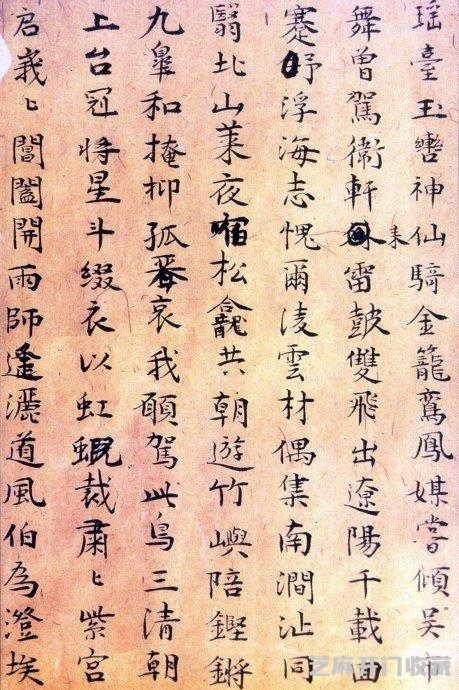 瑤臺玉轡神仙騎金籠鸞鳳媒嘗傾吴市
舞曾駕衛軒来雷鼓雙飛出遼陽千載面
蹇予浮海志愧爾淩雲材偶集南澗沚同
翳北山萊夜宿松龕共朝遊竹嶼陪鏗鏘
九皋和掩抑孤哀我願駕此鳥三清朝
上台冠将星斗綴衣以虹蜺裁肅〻紫宮
启峩〻閶闔開雨師逢灑道風伯為澄埃
芝麻开门收藏